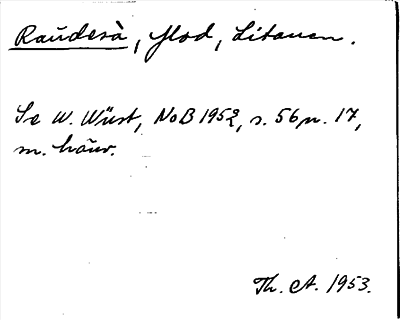 Raudesà, flod, Litauen.
Se W. Wüst, NoB 1952, s. 56 n. 17,
m. hänv.
Th. A. 1953.